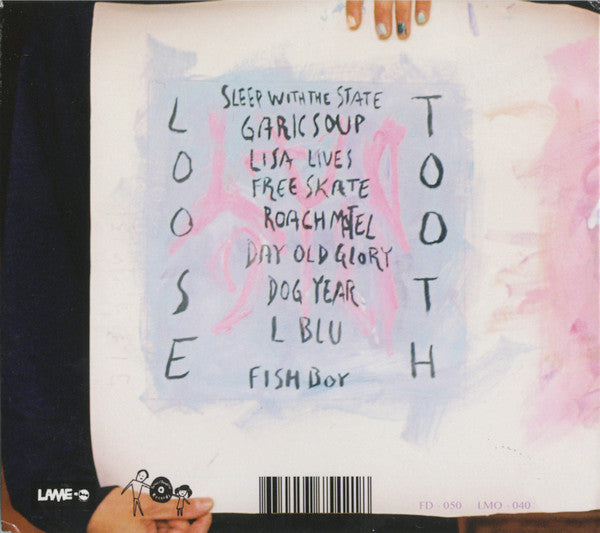 LOOSE
SLEEP WITH THE STATE
GARICSOUP
LISA LIVES
FREE SKATE
ROACH MOTEL
DAY OLD GLORY
DOG YEAR
L BLU
FISH BOY
TOOTH
LAME-O
FD - 050 LMO - 040